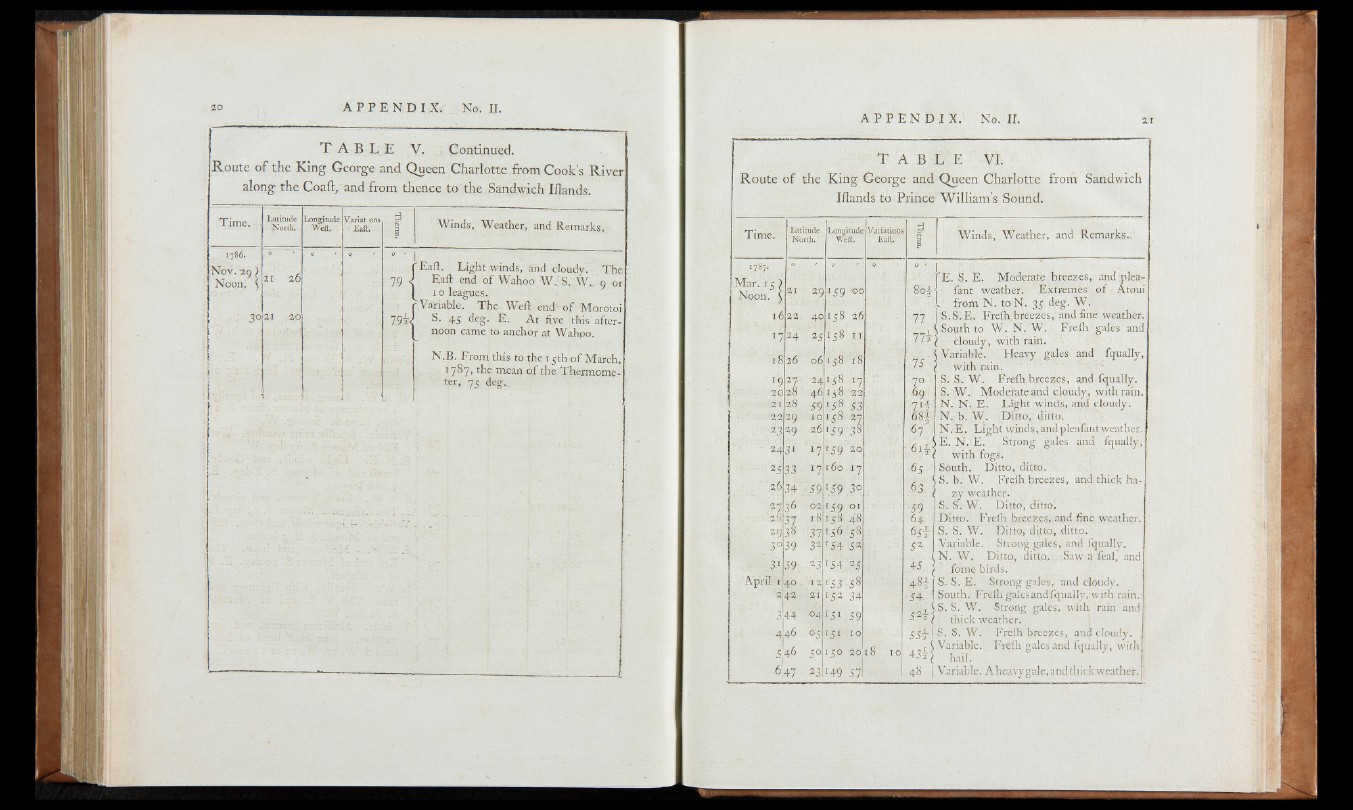 20 APPENDIX. No. II.
TABLE V. Continued.
Route of the King George and Queen Charlotte from Cook's River
along the Coaſt, and from thence to the Sandwich Iſlands.
Time. | Latitude North. | Longitude Weſt. | Variations Eaſt. | Therm. | Winds, Weather, and Remarks.
1786. ° ′ ° ′ ° ′ ° ′
Nov. 29 Noon. } 21 26 79 { Eaſt. Light winds, and cloudy. The
Eaſt end of Wahoo W. S. W. 9 or
10 leagues.
30 21 20 79½ { Variable. The Weſt end of Morotoi
S. 45 deg. E. At five this after-
noon came to anchor at Wahoo.
N.B. From this to the 15th of March,
1787, the mean of the Thermome-
ter, 75 deg.
APPENDIX. No. II. 21
TABLE VI.
Route of the King George and Queen Charlotte from Sandwich
Iſlands to Prince William's Sound.
Time. | Latitude North. | Longitude Weſt. | Variations Eaſt. | Therm. | Winds, Weather, and Remarks.
1787. ° ′ ° ′ ° ′ ° ′
Mar. 15 Noon. } 21 29 159 00 80½ { E. S. E. Moderate breezes, and plea-
ſant weather. Extremes of Atoui
from N. to N. 35 deg. W.
16 22 40 158 26 77 S. S. E. Freſh breezes, and fine weather.
17 24 25 158 11 77½ { South to W. N. W. Freſh gales and
cloudy, with rain.
18 26 06 158 18 75 { Variable. Heavy gales and ſqually,
with rain.
19 27 24 158 17 70 S. S. W. Freſh breezes, and ſqually.
20 28 46 158 22 69 S. W. Moderate and cloudy, with rain.
21 28 59 158 53 71½ N. N. E. Light winds, and cloudy.
22 29 10 158 27 68½ N. b. W. Ditto, ditto.
23 29 26 159 38 67 N. E. Light winds, and pleaſant weather.
24 31 17 159 20 61½ { E. N. E. Strong gales and ſqually,
with fogs.
25 33 17 160 17 65 South. Ditto, ditto.
26 34 59 159 30 63 { S. b. W. Freſh breezes, and thick ha-
zy weather.
27 36 02 159 01 59 S. S. W. Ditto, ditto.
28 37 18 158 48 64 Ditto. Freſh breezes, and fine weather.
29 38 37 156 58 65½ S. S. W. Ditto, ditto, ditto.
30 39 32 154 52 52 Variable. Strong gales, and ſqually.
31 39 23 154 25 45 { N. W. Ditto, ditto. Saw a ſeal, and
ſome birds.
April 1 40 12 153 58 48½ S. S. E. Strong gales, and cloudy.
2 42 21 152 34 54 South. Freſh gales and ſqually, with rain.
3 44 04 151 59 52½ { S. S. W. Strong gales, with rain and
thick weather.
4 46 05 151 10 55½ S. S. W. Freſh breezes, and cloudy.
5 46 50 150 20 18 10 43½ { Variable. Freſh gales and ſqually, with
hail.
6 47 23 149 57 48 Variable. A heavy gale, and thick weather.